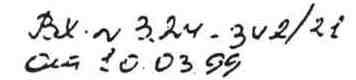 Вх. № 3.24-342/21
от 10.03.99